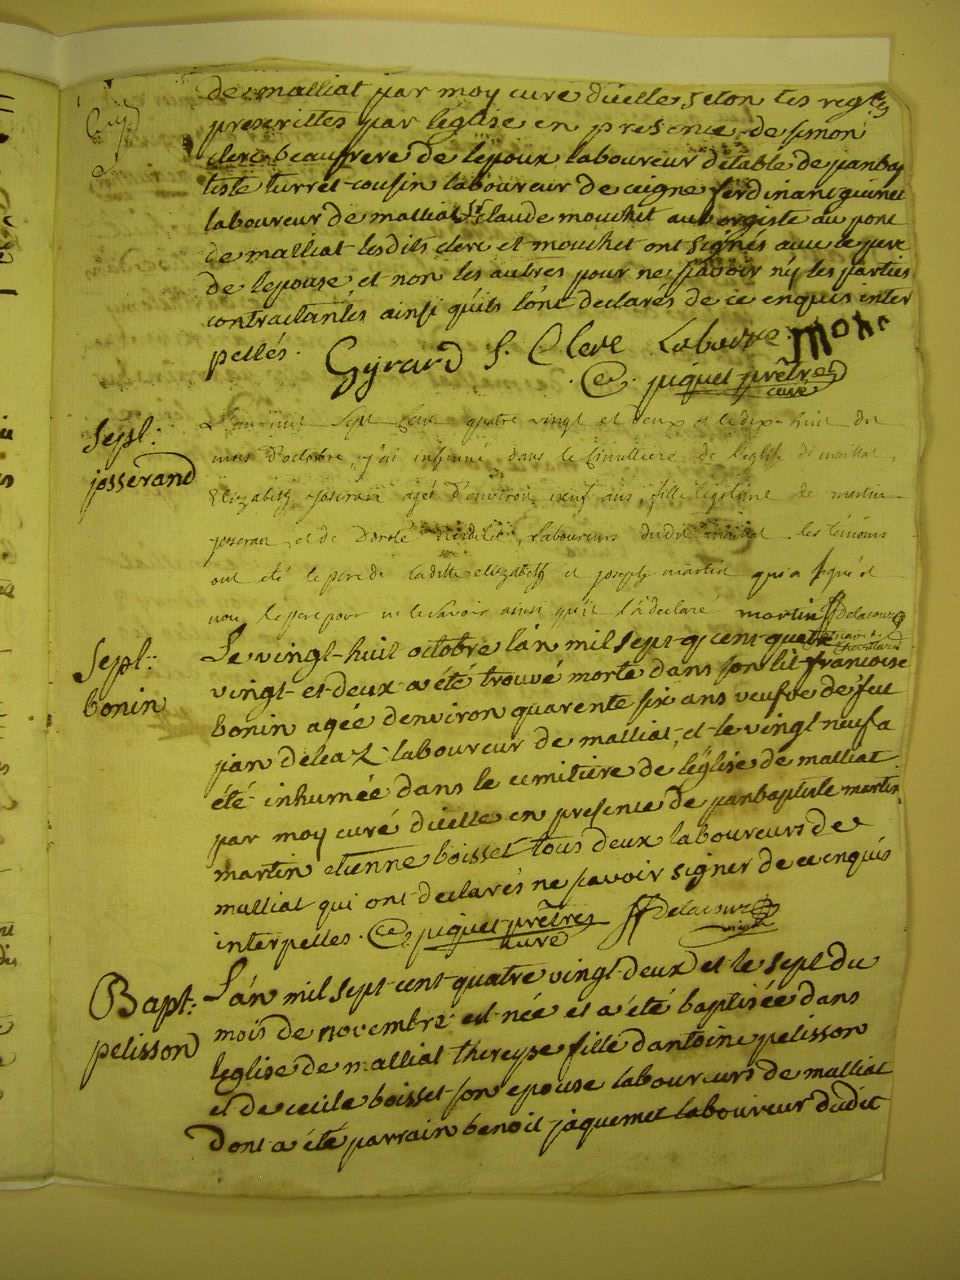 de malliat par moy curé d'icelle, selon les regles
prescrittes par l'église en presence de simon
clerc beaufrere de l'epoux laboureur d'etable de janbap
tiste turret cousin laboureur de ceigne ferdinant guinet
laboureur de malliat et claude mouchet aubergiste au pont
de malliat lesdits clerc et mouchet ont signés avec le pere
de l'epouse et non les autres pour ne sçavoir ny les parties
contractantes ainsi qu'ils l'ont declarés de ce enquis inter
pellés. Gyrard S. Clerc
piquet prêtre
curé
Sepl:
josserand
L'an mil sept cent quatre vingt et deux et le dix huit du
mois d'octobre, j'ai inhumé dans le cimettiere de l'église de maillat,
Elizabeth joseran agée d'environ neuf ans, fille legitime de martin
joseran et de laboureurs dudit maillat. les témoins
ont été le pere de laditte elizabeth et joseph martin qui a signé et
non le pere pour ne le savoir ainsi qu'il l'a declaré martin Delacour
Sepl:
bonin
Le vingt-huit octobre l'an mil sept cent quatre
vingt-et-deux a été trouvé morte dans son lit francoise
bonin agée d'environ quarente six ans veufve de feu
jan deleaz laboureur de malliat, et le vingt neuf a
été inhumée dans le cimitiere de l'église de malliat
par moy curé d'icelle en presence de janbaptiste martin
martin etienne boisset tous deux laboureurs de
malliat qui ont declarés ne sçavoir signer de ce enquis
interpellés. piquet prêtre Delacour
curé
Bapt:
pelisson
L'an mil sept cent quatre vingt deux et le sept du
mois de novembre est née et a été baptisée dans
l'eglise de malliat thereyse fille d'antoine pelisson
et de cecile boisset son epouse laboureurs de malliat
dont a été parrain benoit jaquemet laboureur dudit